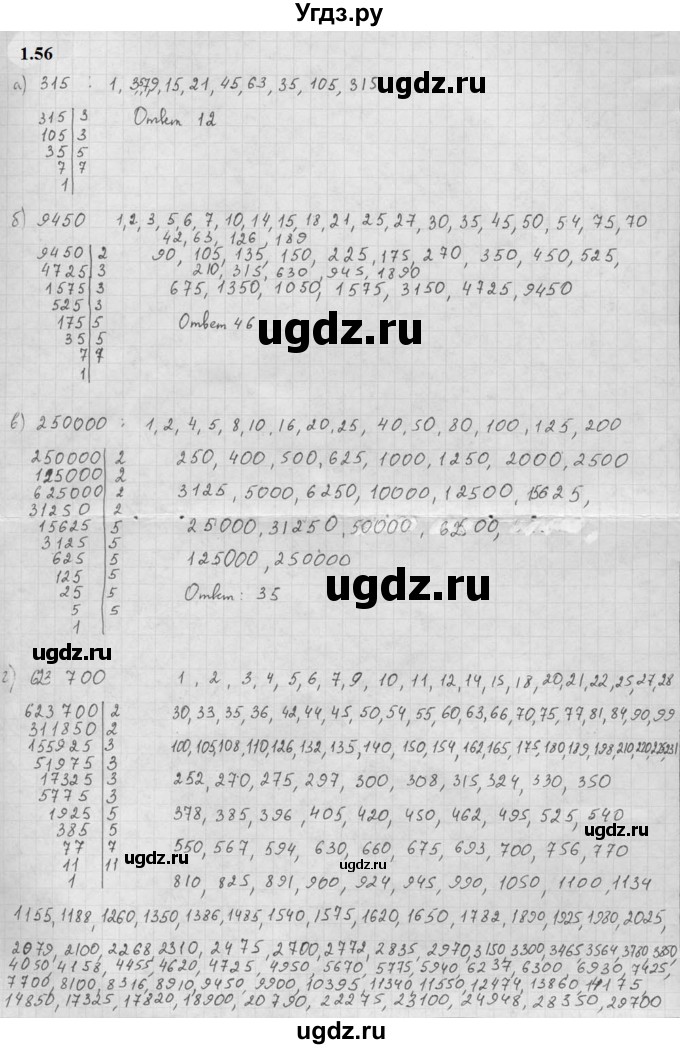 Угдз.ру
1.56
а) 315 : 1, 3,5,7,9, 15, 21, 45, 63, 35, 105, 315
315 | 3 Ответ 12
105 | 3
35 | 5
7 | 7
1
б) 9450 1, 2, 3, 5, 6, 7, 10, 14, 15, 18, 21, 25, 27, 30, 35, 45, 50, 54, 75, 70
42, 63, 126, 189
9450 | 2 90, 105, 135, 150, 225, 175, 270, 350, 450, 525,
4725 | 3 210, 315, 630, 945, 1890
1575 | 3 675, 1350, 1050, 1575, 3150, 4725, 9450
525 | 3
175 | 5 Ответ 46
35 | 5
7 | 7
1
ugdz.ru
в) 250000 : 1, 2, 4, 5, 8, 10, 16, 20, 25, 40, 50, 80, 100, 125, 200
250000 | 2 250, 400, 500, 625, 1000, 1250, 2000, 2500
125000 | 2
625000 | 2 3125, 5000, 6250, 10000, 12500, 15625,
31250 | 2
15625 | 5 25000, 31250, 50000, 62500,
3125 | 5
625 | 5 125000, 250000
125 | 5
25 | 5 Ответ: 35
5 | 5
1
ugdz.ru
ugdz.ru
г) 623 700 1, 2, 3, 4, 5, 6, 7, 9, 10, 11, 12, 14, 15, 18, 20, 21, 22, 25, 27, 28
623700 | 2 30, 33, 35, 36, 42, 44, 45, 50, 54, 55, 60, 63, 66, 70, 75, 77, 81, 84, 90, 99
311850 | 2
155925 | 3 100, 105, 108, 110, 126, 132, 135, 140, 150, 154, 162, 165, 175, 180, 189, 198, 210, 220, 225, 231
51975 | 3
17325 | 3 252, 270, 275, 297, 300, 308, 315, 324, 330, 350
5775 | 3
1925 | 5 378, 385, 396, 405, 420, 450, 462, 495, 525, 540
385 | 5
77 | 7 550, 567, 594, 630, 660, 675, 693, 700, 756, 770
11 | 11
1 810, 825, 891, 900, 924, 945, 990, 1050, 1100, 1134
ugdz.ru
ugdz.ru
1155, 1188, 1260, 1350, 1386, 1485, 1540, 1575, 1620, 1650, 1782, 1890, 1925, 1980, 2025,
2079, 2100, 2268, 2310, 2475, 2700, 2772, 2835, 2970, 3150 3300, 3465 3564, 3780 3850
4050 4158, 4455 4620, 4725, 4950 5670, 5775, 5940 6237, 6300, 6930, 7425,
7700, 8100, 8316, 8910, 9450, 9900, 10395, 11340 11550, 12474, 13860, 14175,
14850, 17325, 17820, 18900, 20790, 22275, 23100, 24948, 28350, 29700
ugdz.ru